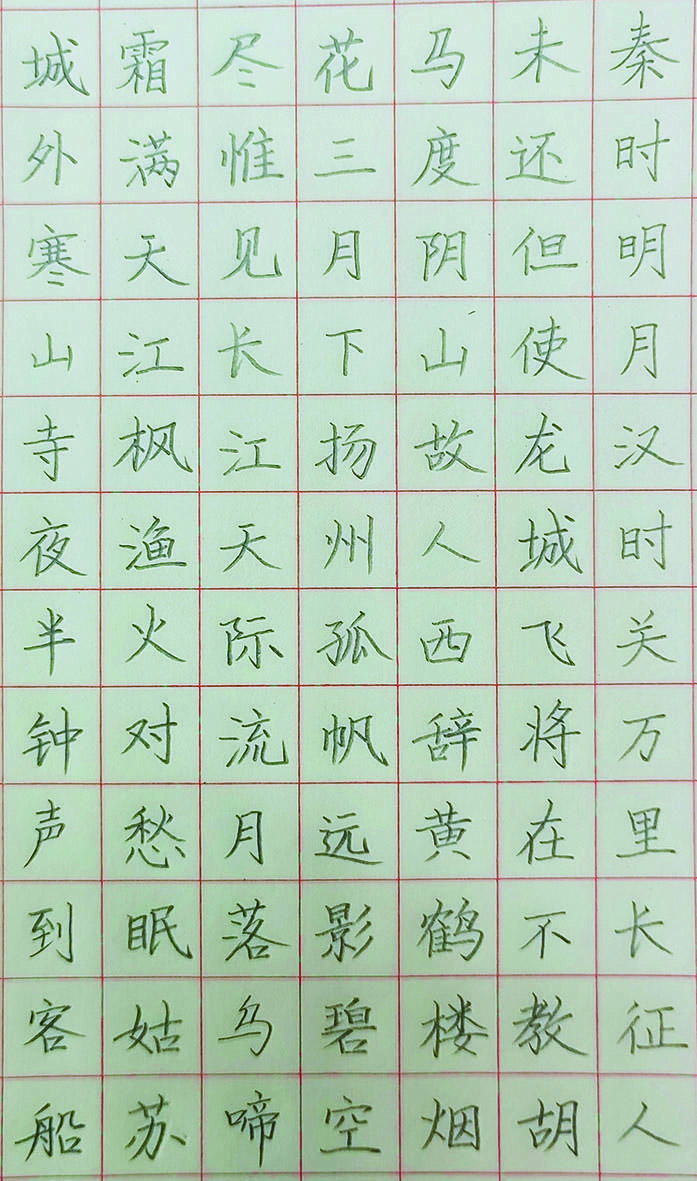 秦时明月汉时关万里长征人
未还但使龙城飞将在不教胡
马度阴山故人西辞黄鹤楼烟
花三月下扬州孤帆远影碧空
尽惟见长江天际流月落乌啼
霜满天江枫渔火对愁眠姑苏
城外寒山寺夜半钟声到客船